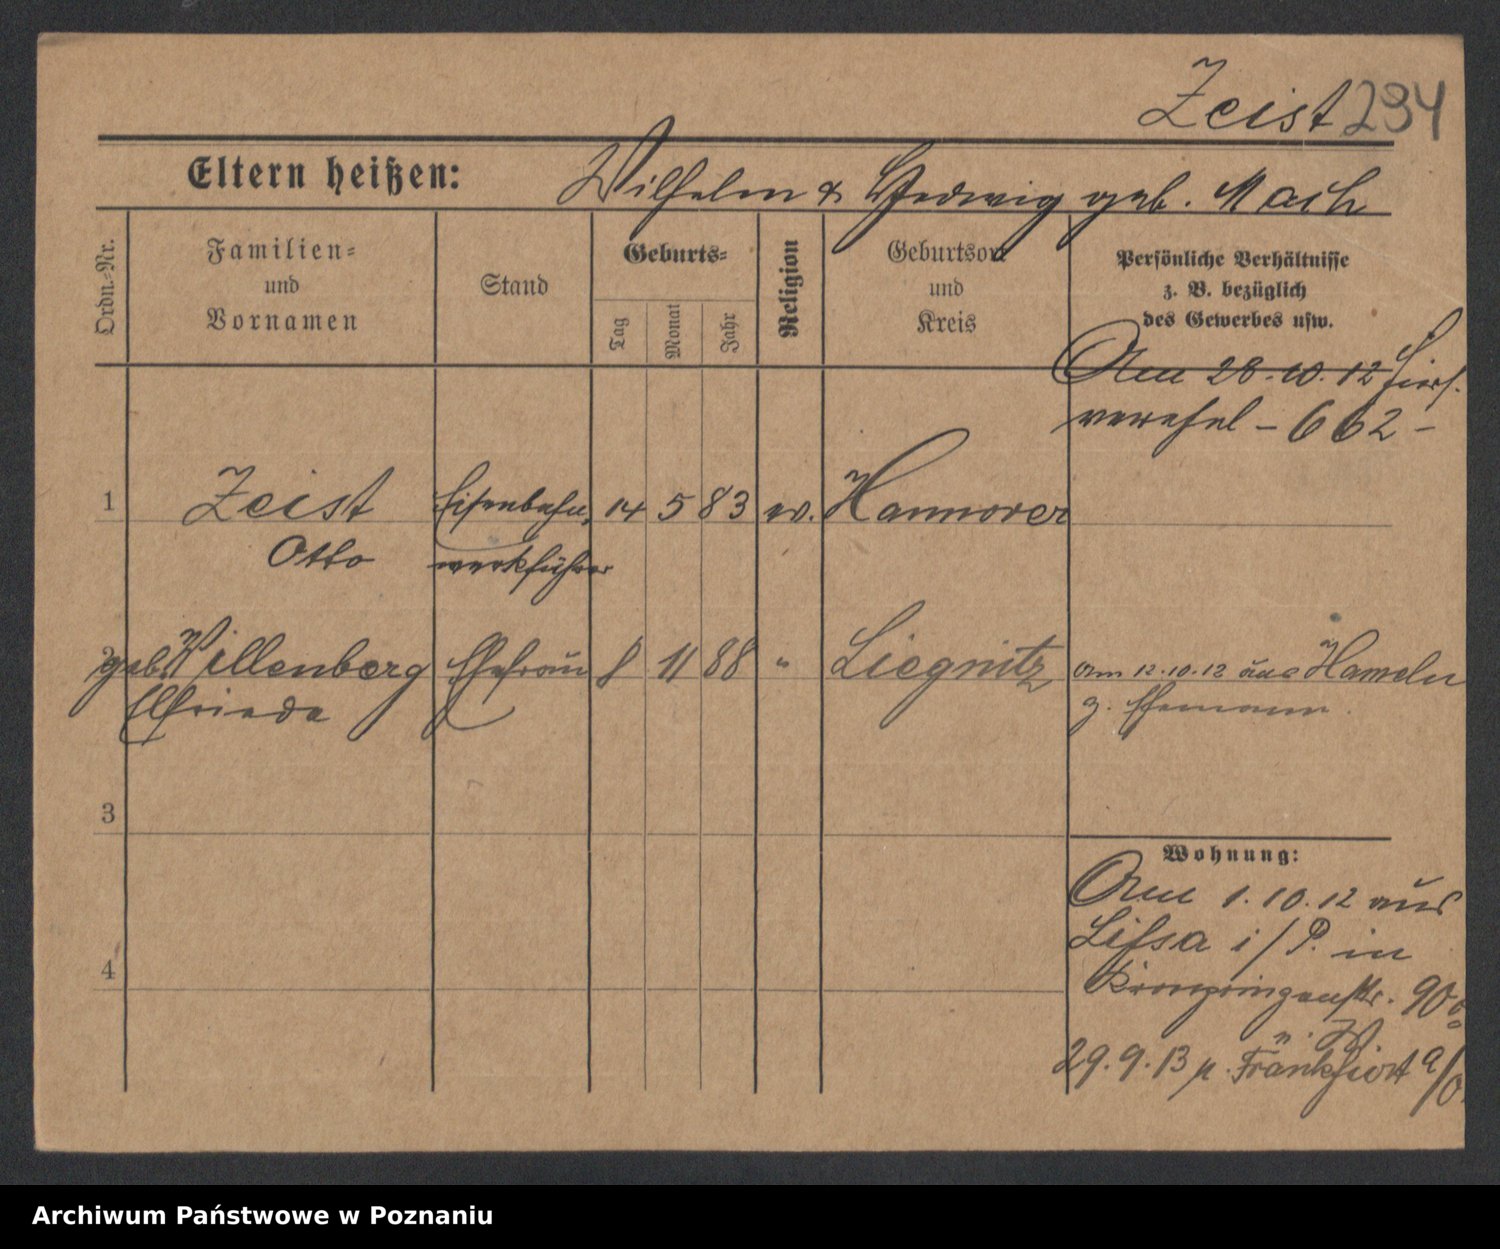 Zeist 294
Eltern heißen: Wilhelm & Hedwig geb. Mach
Ordn.-Nr.
Familien- und Vornamen
Stand
Geburts-
Tag
Monat
Jahr
Religion
Geburtsort und Kreis
Persönliche Verhältnisse
z. B. bezüglich
des Gewerbes usw.
Am 28.10.12 hier
- 662 -
1 Zeist Eisenbahn- 14 5 83 ev. Hannover
Otto werkführer
2 geb. Willenberg Ehefrau 8 11 88 " Liegnitz am 12.10.12 aus Hameln
Elfriede z. Ehemann.
3
4
Wohnung:
Am 1.10.12 aus
Lissa i/P. in
Kronprinzenstr. 90
29.9.13 n. Frankfurt a/O.
Archiwum Państwowe w Poznaniu